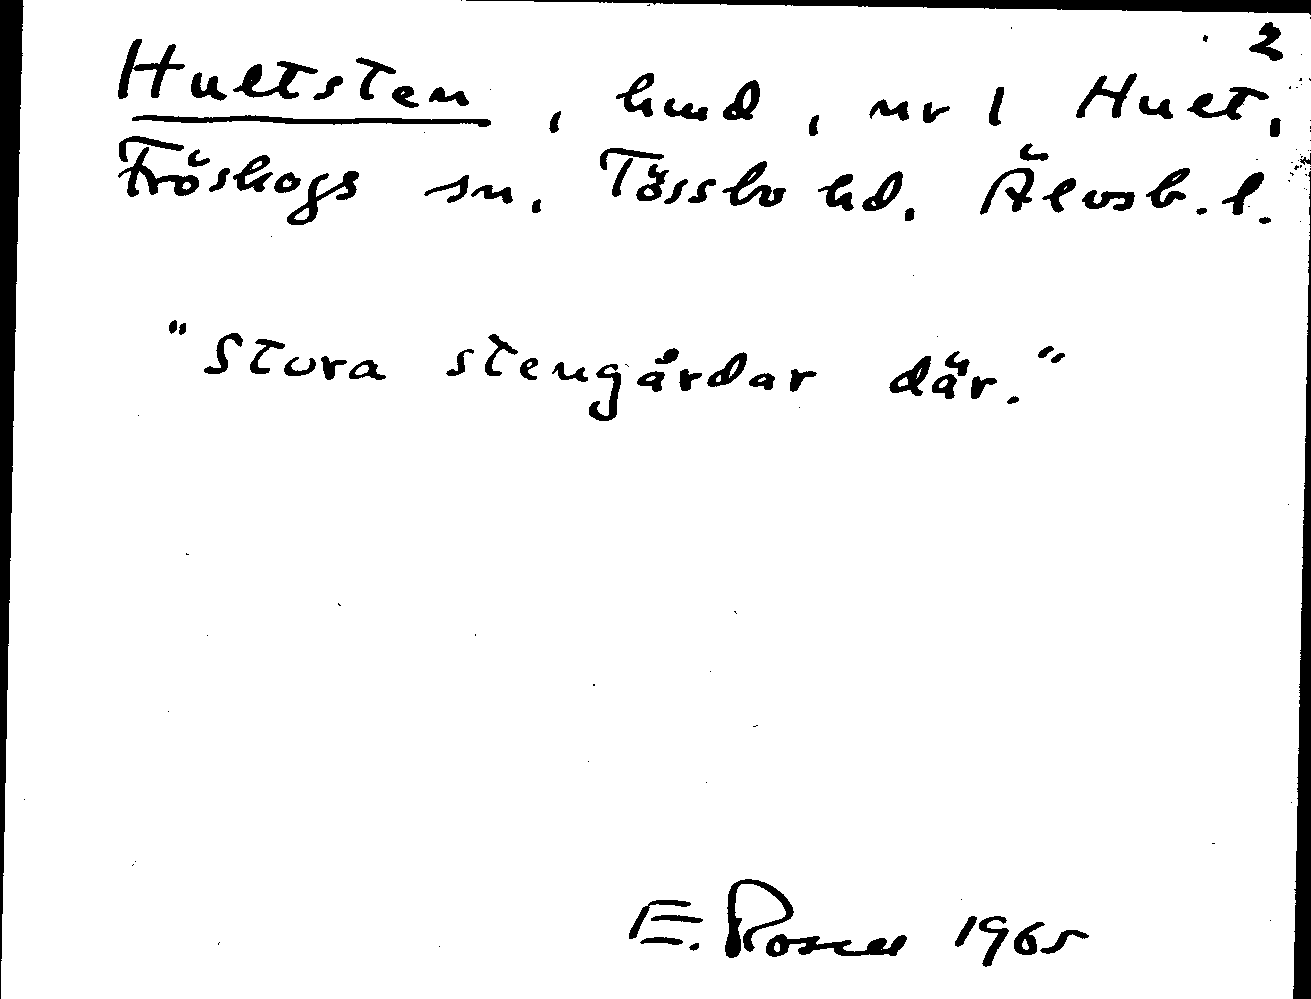 2
Hultsten, hmd, nr 1 Hult,
Fröskogs sn. Tössbo hd. Älvsb. l.
"Stora stengårdar där."
E. Rosell 1965